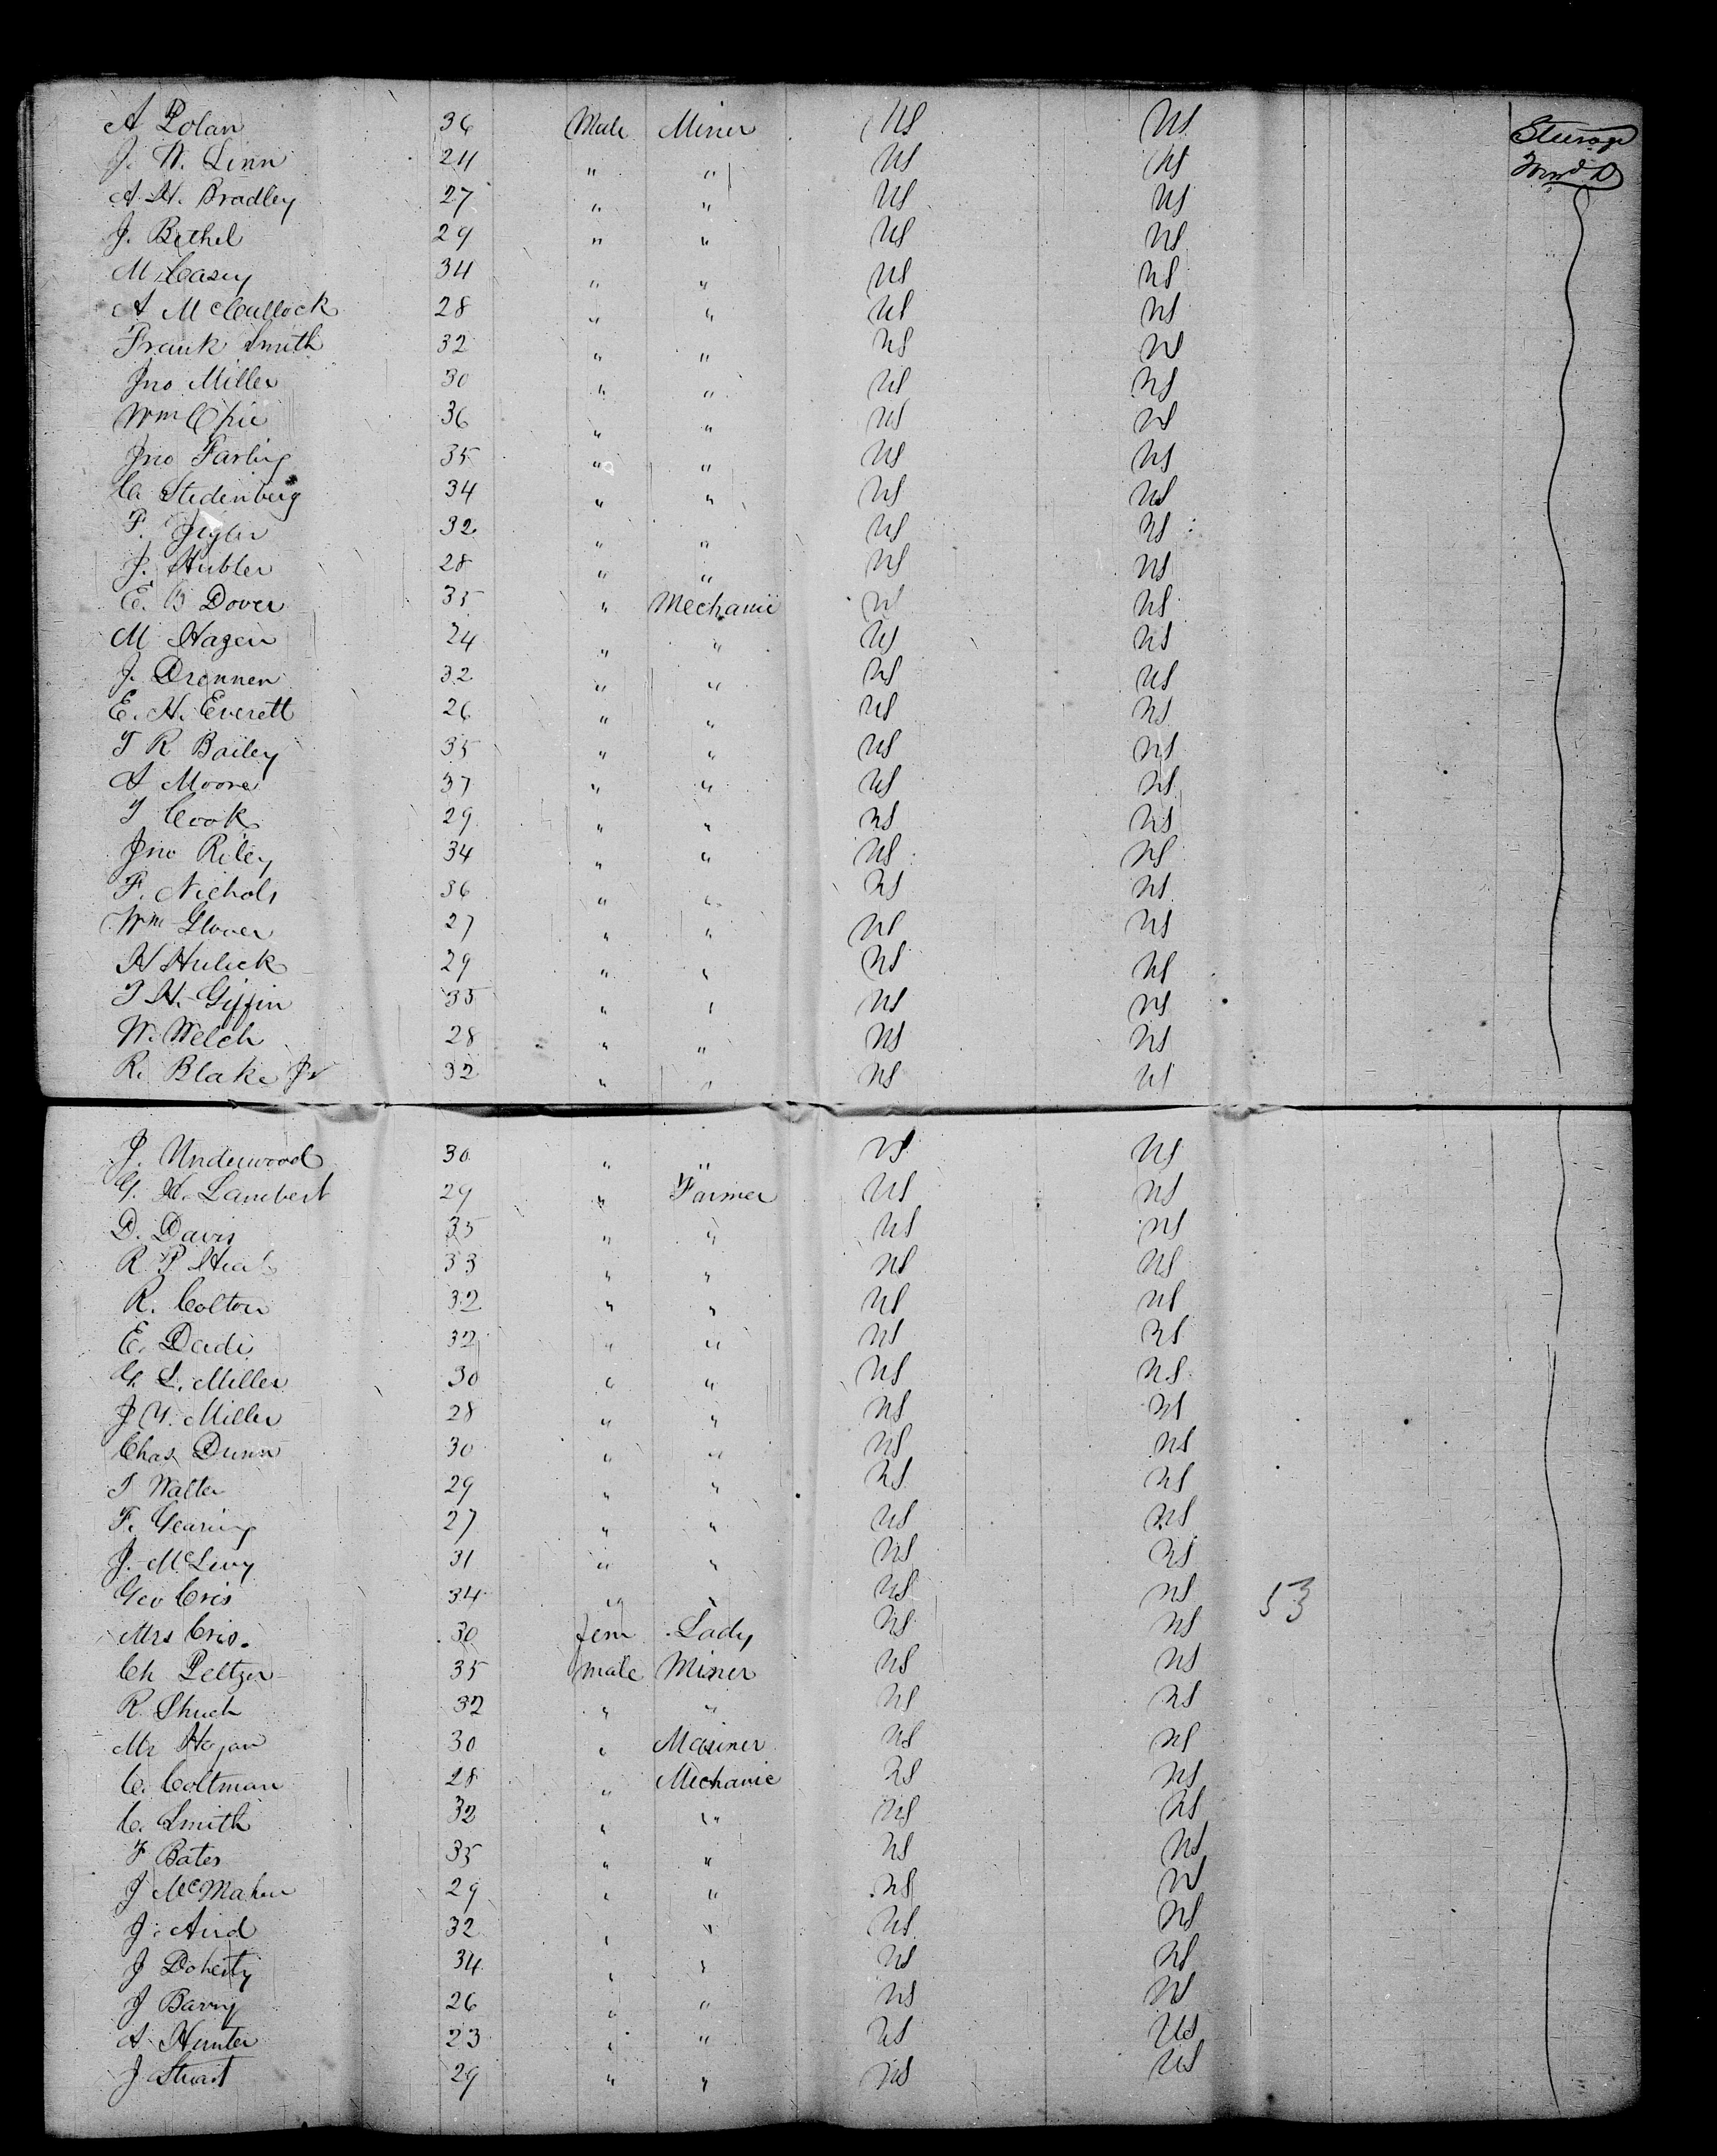 A Polan 36 Male Miner US US Steerage
J. W. Linn 24 " " US US Forwd D
A. H. Bradley 27 " " US US
J. Bethel 29 " " US US
M. Casey 34 " " US US
A McCullock 28 " " US US
Frank Smith 32 " " US US
Jno Miller 30 " " US US
Wm Opie 36 " " US US
Jno Farling 35 " " US US
C. Stedenberg 34 " " US US
P. 32 " " US US
J. Hubler 28 " " US US
E. B Dover 35 " Mechanic US US
M Hagen 24 " " US US
J. Drennen 32 " " US US
E. H. Everett 26 " " US US
T R Bailey 35 " " US US
A Moore 37 " " US US
T Cook 29 " " US US
Jno Riley 34 " " US US
F. Nichols 36 " " US US
Wm Glover 27 " " US US
H Hulick 29 " " US US
T H. Giffin 35 " " US US
W. Welch 28 " " US US
R. Blake Jr 32 " " US US
J. Underwood 30 " " US US
G. H. Lambert 29 " Farmer US US
D. Davis 35 " " US US
R P 33 " " US US
R. Colton 32 " " US US
E. Dade 32 " " US US
G. L. Miller 30 " " US US
J Y. Miller 28 " " US US
Chas Dunn 30 " " US US
T Walter 29 " " US US
F. Gearing 27 " " US US
J. McLevy 31 " " US US
Geo Cris 34 " " US US 53
Mrs Cris. 30 fem Lady US US
Ch Peltzer 35 male Miner US US
R. Shuck 32 " " US US
Mr Hogan 30 " Mariner US US
C. Coltman 28 " Mechanic US US
C. Smith 32 " " US US
F Bates 35 " " US US
J McMahon 29 " " US US
J. Aird 32 " " US US
J Doherty 34 " " US US
J Barry 26 " " US US
A Hunter 23 " " US US
J Stuart 29 " " US US